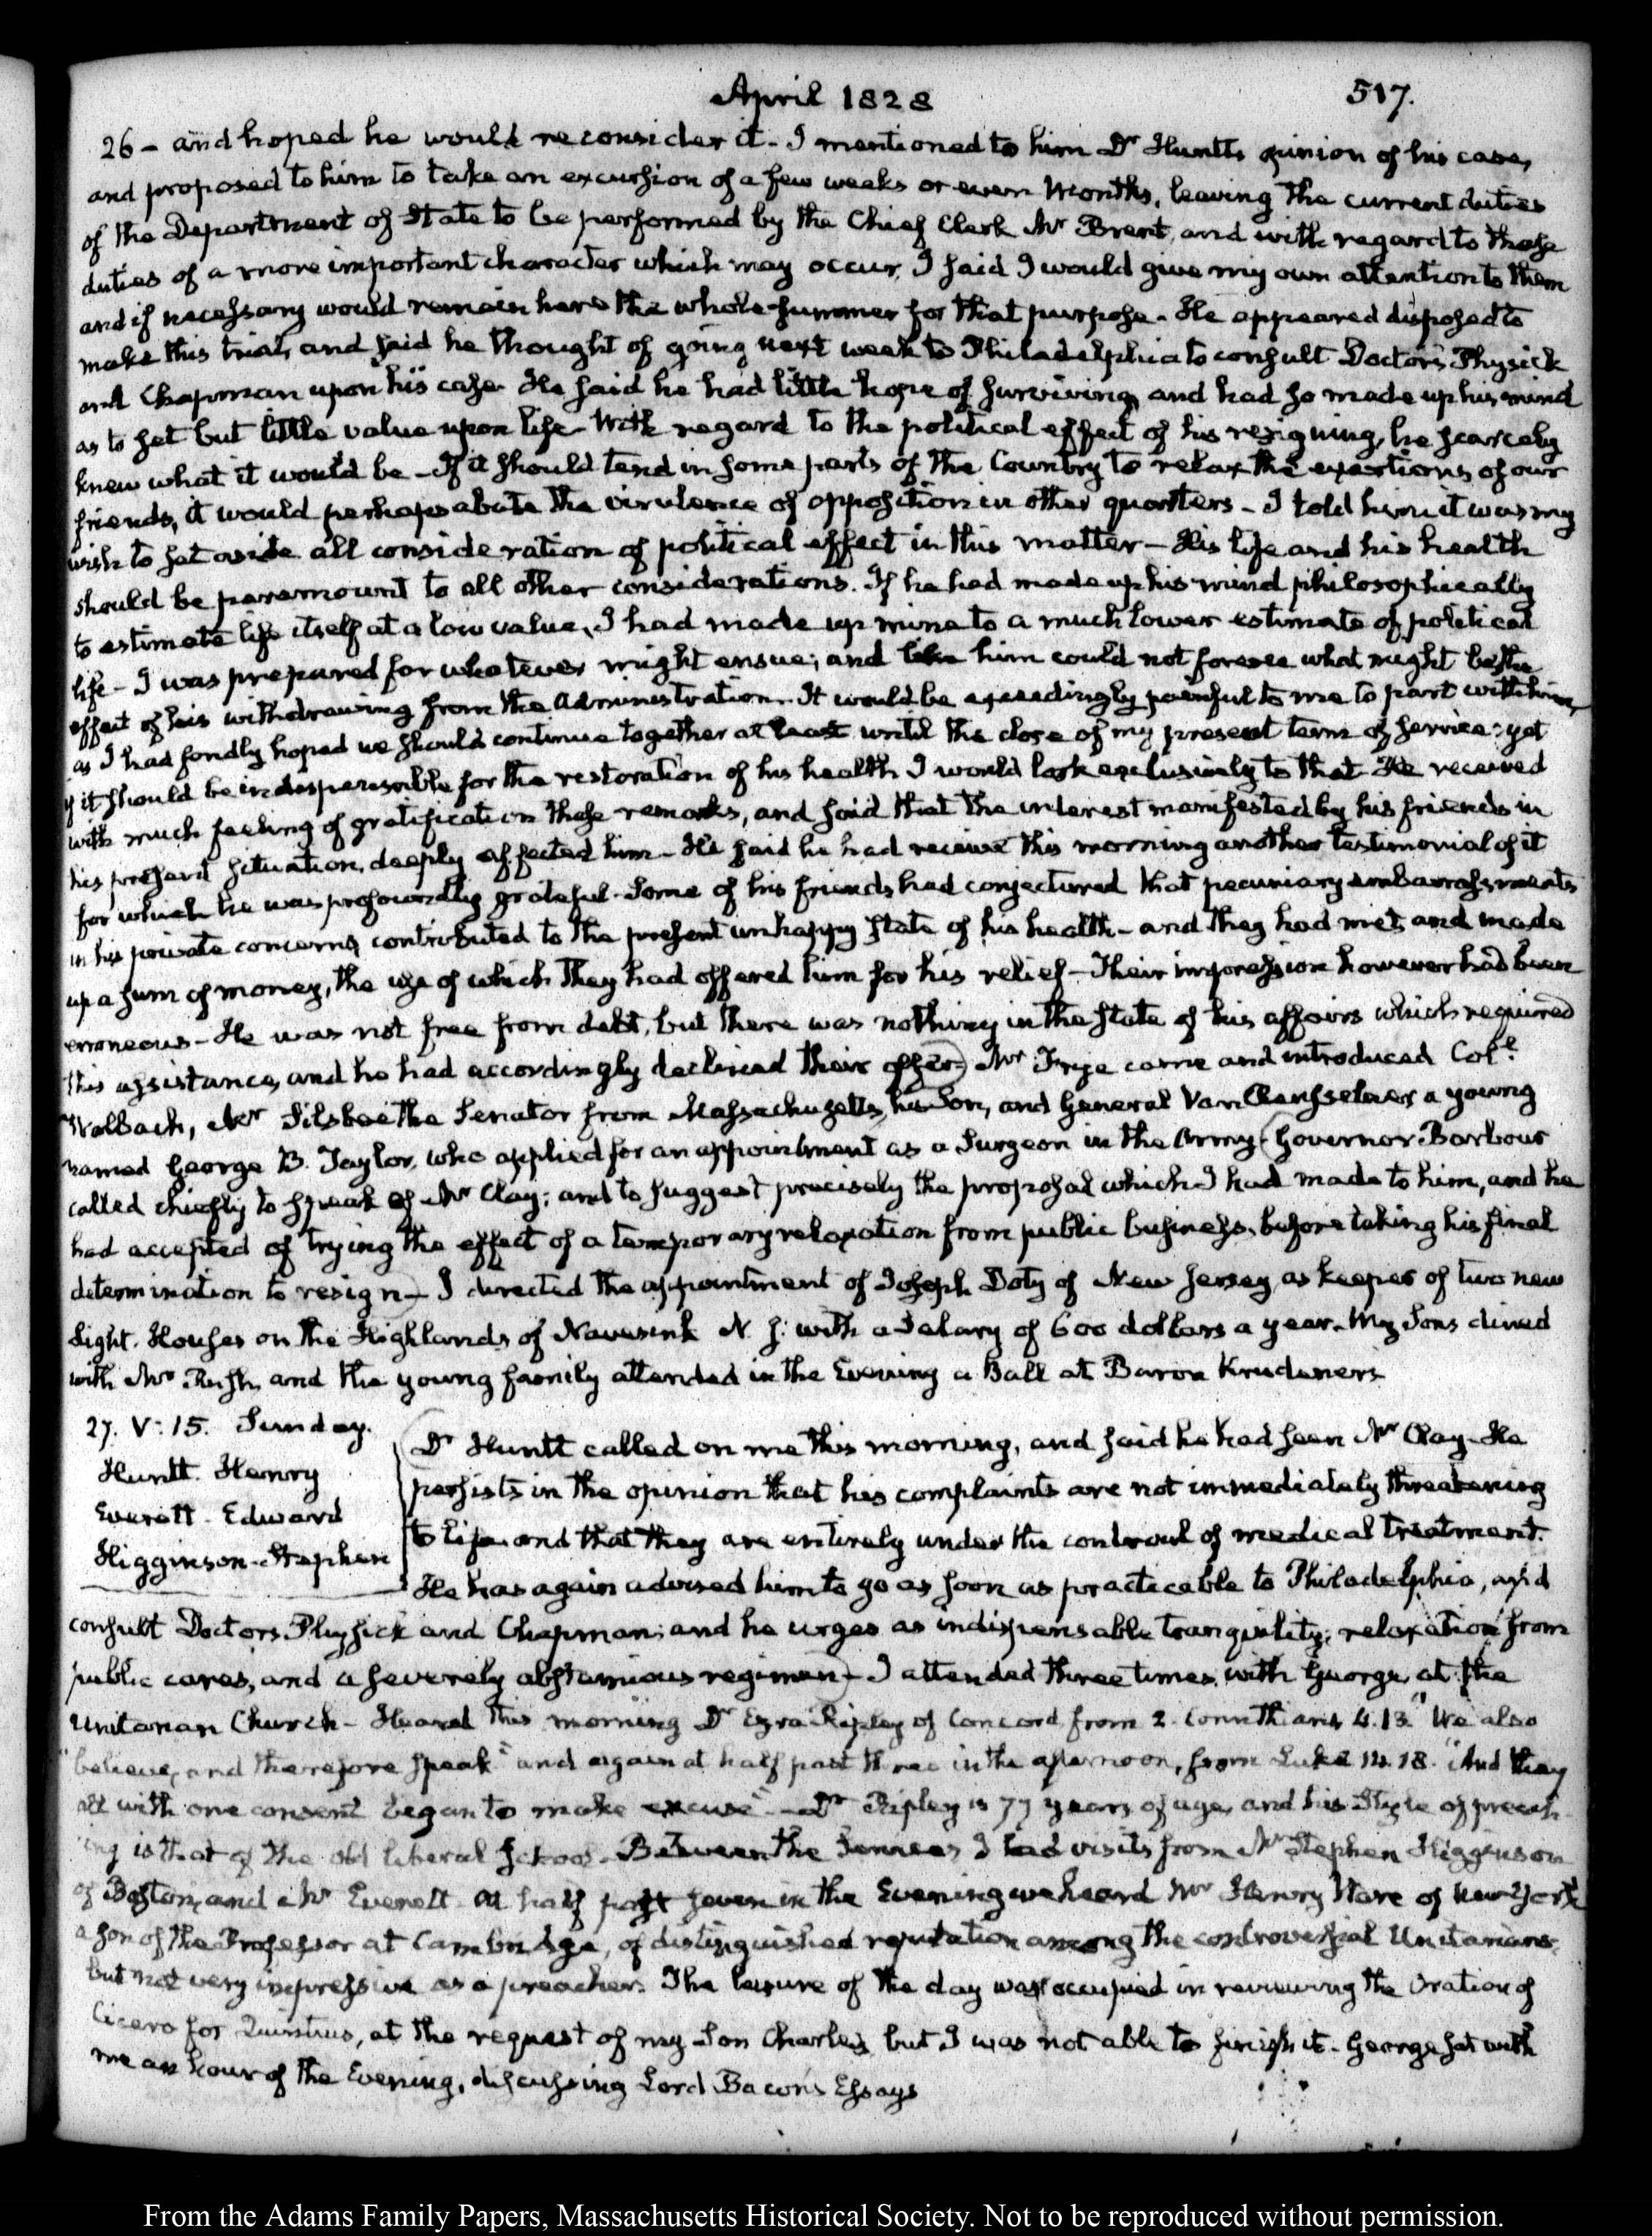 April 1828
517.
26 – and hoped he would reconsider it. I mentioned to him Dr Huntt's opinion of his case,
and proposed to him to take an excursion of a few weeks or even Months, leaving the current duties
of the Department of State to be performed by the Chief Clerk Mr Brent, and with regard to those
duties of a more important character which may occur, I said I would give my own attention to them
and if necessary would remain here the whole summer for that purpose. He appeared disposed to
make this trial, and said he thought of going next week to Philadelphia to consult Doctors Physick
and Chapman upon his case. He said he had little hope of surviving, and had so made up his mind
as to set but little value upon life. With regard to the political effect of his resigning, he scarcely
knew what it would be – If it should tend in some parts of the Country to relax the exertions of our
friends, it would perhaps abate the virulence of opposition in other quarters – I told him it was my
wish to set aside all consideration of political effect in this matter – His life and his health
should be paramount to all other considerations. If he had made up his mind philosophically
to estimate life itself at a low value, I had made up mine to a much lower estimate of political
life – I was prepared for whatever might ensue; and like him could not foresee what might be the
effect of his withdrawing from the Administration. It would be exceedingly painful to me to part with him,
as I had fondly hoped we should continue together at least until the close of my present term of service: yet
if it should be indispensable for the restoration of his health I would look exclusively to that. He received
with much feeling of gratification these remarks, and said that the interest manifested by his friends in
his present situation, deeply affected him – He said he had receive this morning another testimonial of it
for which he was profoundly grateful. Some of his friends had conjectured that pecuniary embarrassments
in his private concerns, contributed to the present unhappy state of his health – and they had met, and made
up a sum of money, the use of which they had offered him for his relief – Their impression however had been
erroneous – He was not free from debt, but there was nothing in the state of his affairs which required
this assistance, and he had accordingly declined their offer) Mr Frye came and introduced Coll.
Walbach, Mr Silsbee the Senator from Massachusetts, his Son, and General Van Rensselaer a young
named George B. Taylor, who applied for an appointment as a Surgeon in the Army (Governor Barbour
called chiefly to speak of Mr Clay; and to suggest precisely the proposal which I had made to him, and he
had accepted of trying the effect of a temporary relaxation from public business, before taking his final
determination to resign) – I directed the appointment of Joseph Doty of New Jersey, as keeper of two new
Light-Houses on the Highlands of Navesink N. J. with a Salary of 600 dollars a year. My Sons dined
with Mr Rush, and the young family attended in the Evening a Ball at Baron Krudener's
27. V: 15. Sunday.
Huntt. Henry
Everett. Edward
Higginson. Stephen
(Dr Huntt called on me this morning, and said he had seen Mr Clay. He
persists in the opinion that his complaints are not immediately threatening
to life, and that they are entirely under the controul of medical treatment.
He has again advised him to go as soon as practicable to Philadelphia, and
consult Doctors Physick and Chapman; and he urges as indispensable tranquility; relaxation from
public cares, and a severely abstemious regimen) – I attended three times, with George, at the
Unitarian Church – Heard this morning Dr Ezra Ripley of Concord, from 2. Corinthians 4.13. "We also
"believe, and therefore speak" and again at half past three in the afternoon, from Luke 14.18. "And they
all with one consent began to make excuse" – Dr Ripley is 77 years of age, and his Style of preach-
ing is that of the old liberal school. Between the Services I had visits from Mr Stephen Higginson
of Boston, and Mr Everett. At half past seven in the Evening we heard Mr Henry Ware of New-York
a son of the Professor at Cambridge, of distinguished reputation among the controversial Unitarians,
but not very impressive as a preacher. The leisure of the day was occupied in reviewing the Oration of
Cicero for Quinctius, at the request of my Son Charles, but I was not able to finish it. George sat with
me an hour of the Evening, discussing Lord Bacon's Essays
From the Adams Family Papers, Massachusetts Historical Society. Not to be reproduced without permission.